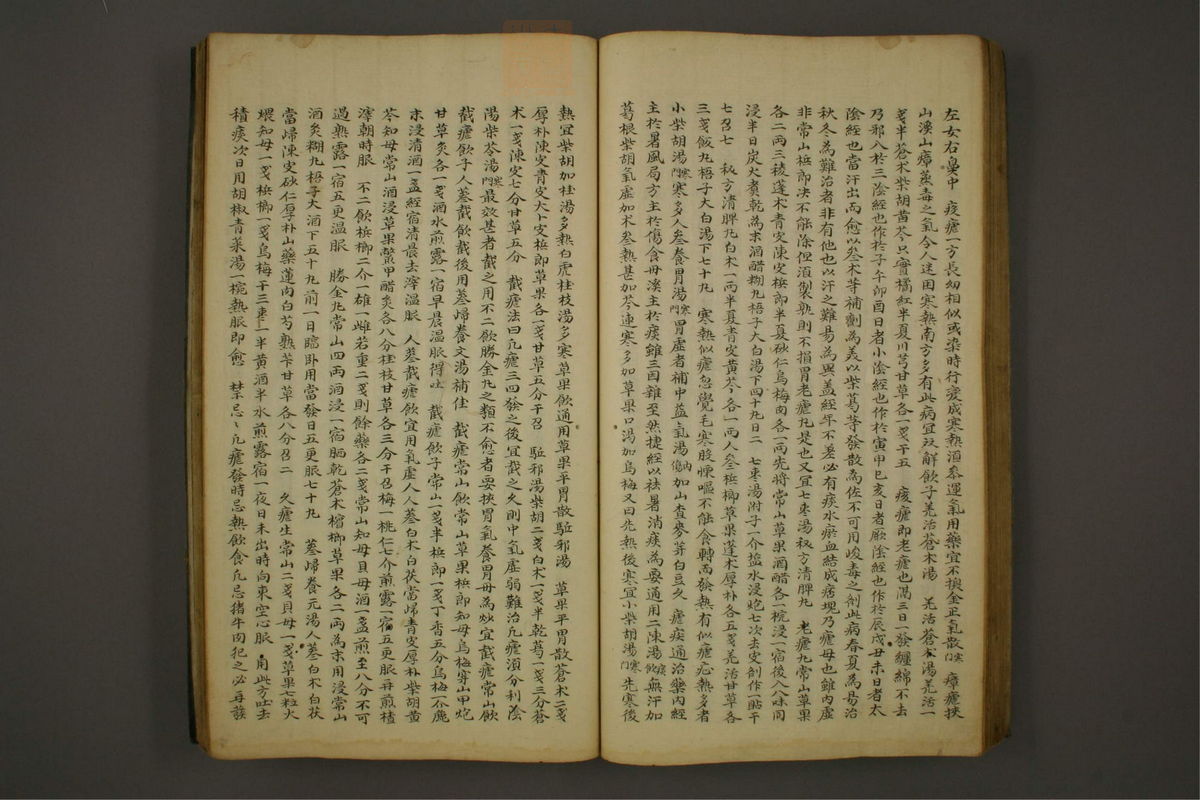 左女右臺中 痎瘧一方長幼相似或染時行變成寒熱須參運氣用藥宜不換金正氣散門寒 瘴瘧挾
山溪山瘴蒸毒之氣令人迷困寒熱南方多有此病宜双解飮子羌活蒼朮湯 羌活蒼朮湯羌活一
戔半蒼朮柴胡黃芩只實橘紅半夏川芎甘草各一戔干五 痎瘧卽老瘧也隔三日一發纏綿不去
乃邪入於三陰經也作於子午卯酉日者小陰經也作於寅申巳亥日者厥陰經也作於辰戌丑未日者太
陰經也當汗出而愈以叅朮等補劑爲羙以柴葛等發散爲佐不可用峻毒之劑此病春夏爲易治
秋冬爲難治者非有他也以汗之難易爲異盖經年不差必有痰水瘀血結成痞塊乃瘧母也雖內虛
非常山梹郞决不能除但須製熟則不損胃老瘧丸是也又宜七枣湯秘方清脾丸 老瘧丸常山草果
各二兩三稜蓬朮青皮陳皮梹郞半夏砂仁烏梅肉各一兩先將常山草果酒醋各一椀浸一宿後入八味同
浸半日炭火煑乾爲末酒醋糊丸梧子大白湯下四十丸日二 七枣湯附子一介盐水浸炮七次去皮剉作一貼干
七召七 秘方清脾丸白朮一兩半夏青皮黃芩各一兩人叅梹榔草果蓬朮厚朴各五戔羌活甘草各
三戔飯丸梧子大白湯下七十丸 寒熱似瘧忽覺毛寒股慄嘔不能食轉而發熱有似瘧疾熱多者
小柴胡湯門寒寒多人叅養胃湯門寒胃虛者補中益氣湯內傷加山查麥芽白豆久 瘧疾通治藥內經
主於暑風局方主於傷食丹溪主於痰雖三因雜至然捷經以祛暑消痰爲要通用二陳湯痰飮無汗加
葛根柴胡氣虛加朮叅熱甚加芩連寒多加草果口渴加烏梅又曰先熱後寒宜小柴胡湯門寒先寒後
熱宜柴胡加桂湯多熱白虎桂枝湯多寒草果飮通用草果平胃散駈邪湯 草果平胃散蒼朮二戔
厚朴陳皮青皮大卜皮梹郞草果各一戔甘草五分干召 駈邪湯柴胡二戔白朮一戔半乾葛一戔三分蒼
朮一戔陳皮七分甘草五分 截瘧法曰凡瘧三四發之後宜截之久則中氣虛弱難治凡瘧須分利陰
湯柴苓湯門寒最效甚者截之用不二飮勝金丸之類不愈者要挾胃氣養胃母爲妙宜截瘧常山飮
截瘧飮子人蔘截飮截後用蔘歸養文湯補住 截瘧常山飮常山草果梹郞知母烏梅穿山甲炮
甘草灸各一戔酒水煎露一宿早晨温服得吐 截瘧飮子常山二戔半梹郞一戔丁香五分烏梅一介麁
末浸淸酒一盞經宿清晨去滓温服 人蔘截瘧飮宜用氣虛人人蔘白朮白茯當歸青皮厚朴柴胡黃
芩知母常山酒浸草果鱉甲醋灸各八分桂枝甘草各三分干召梅一桃仁七介煎露一宿五更服再煎楂
滓朝時服 不二飮梹榔二介一雄一雌若重二戔則餘藥各二戔常山知母貝母酒一盞煎至八分不可
過熟露一宿五更温服 勝金丸常山四兩酒浸一宿晒乾蒼朮檳榔草果各二兩爲末用浸常山
酒灸糊丸梧子大酒下五十丸前一日臨臥用當發日五更服七十丸 蔘歸養元湯人蔘白朮白茯
當歸陳皮砂仁厚朴山藥蓮肉白芍熟芐甘草各八分召二 久瘧生常山二戔貝母一戔草果七粒火
煨知母一戔梹榔一戔烏梅干三枣二半黃酒半水煎露宿一夜日未出時向東空心服用此方吐去
積痰次日用胡椒青菜湯一椀熱服卽愈 禁忌凡瘧發時忌熱飮食凡忌猪牛肉犯之必再發